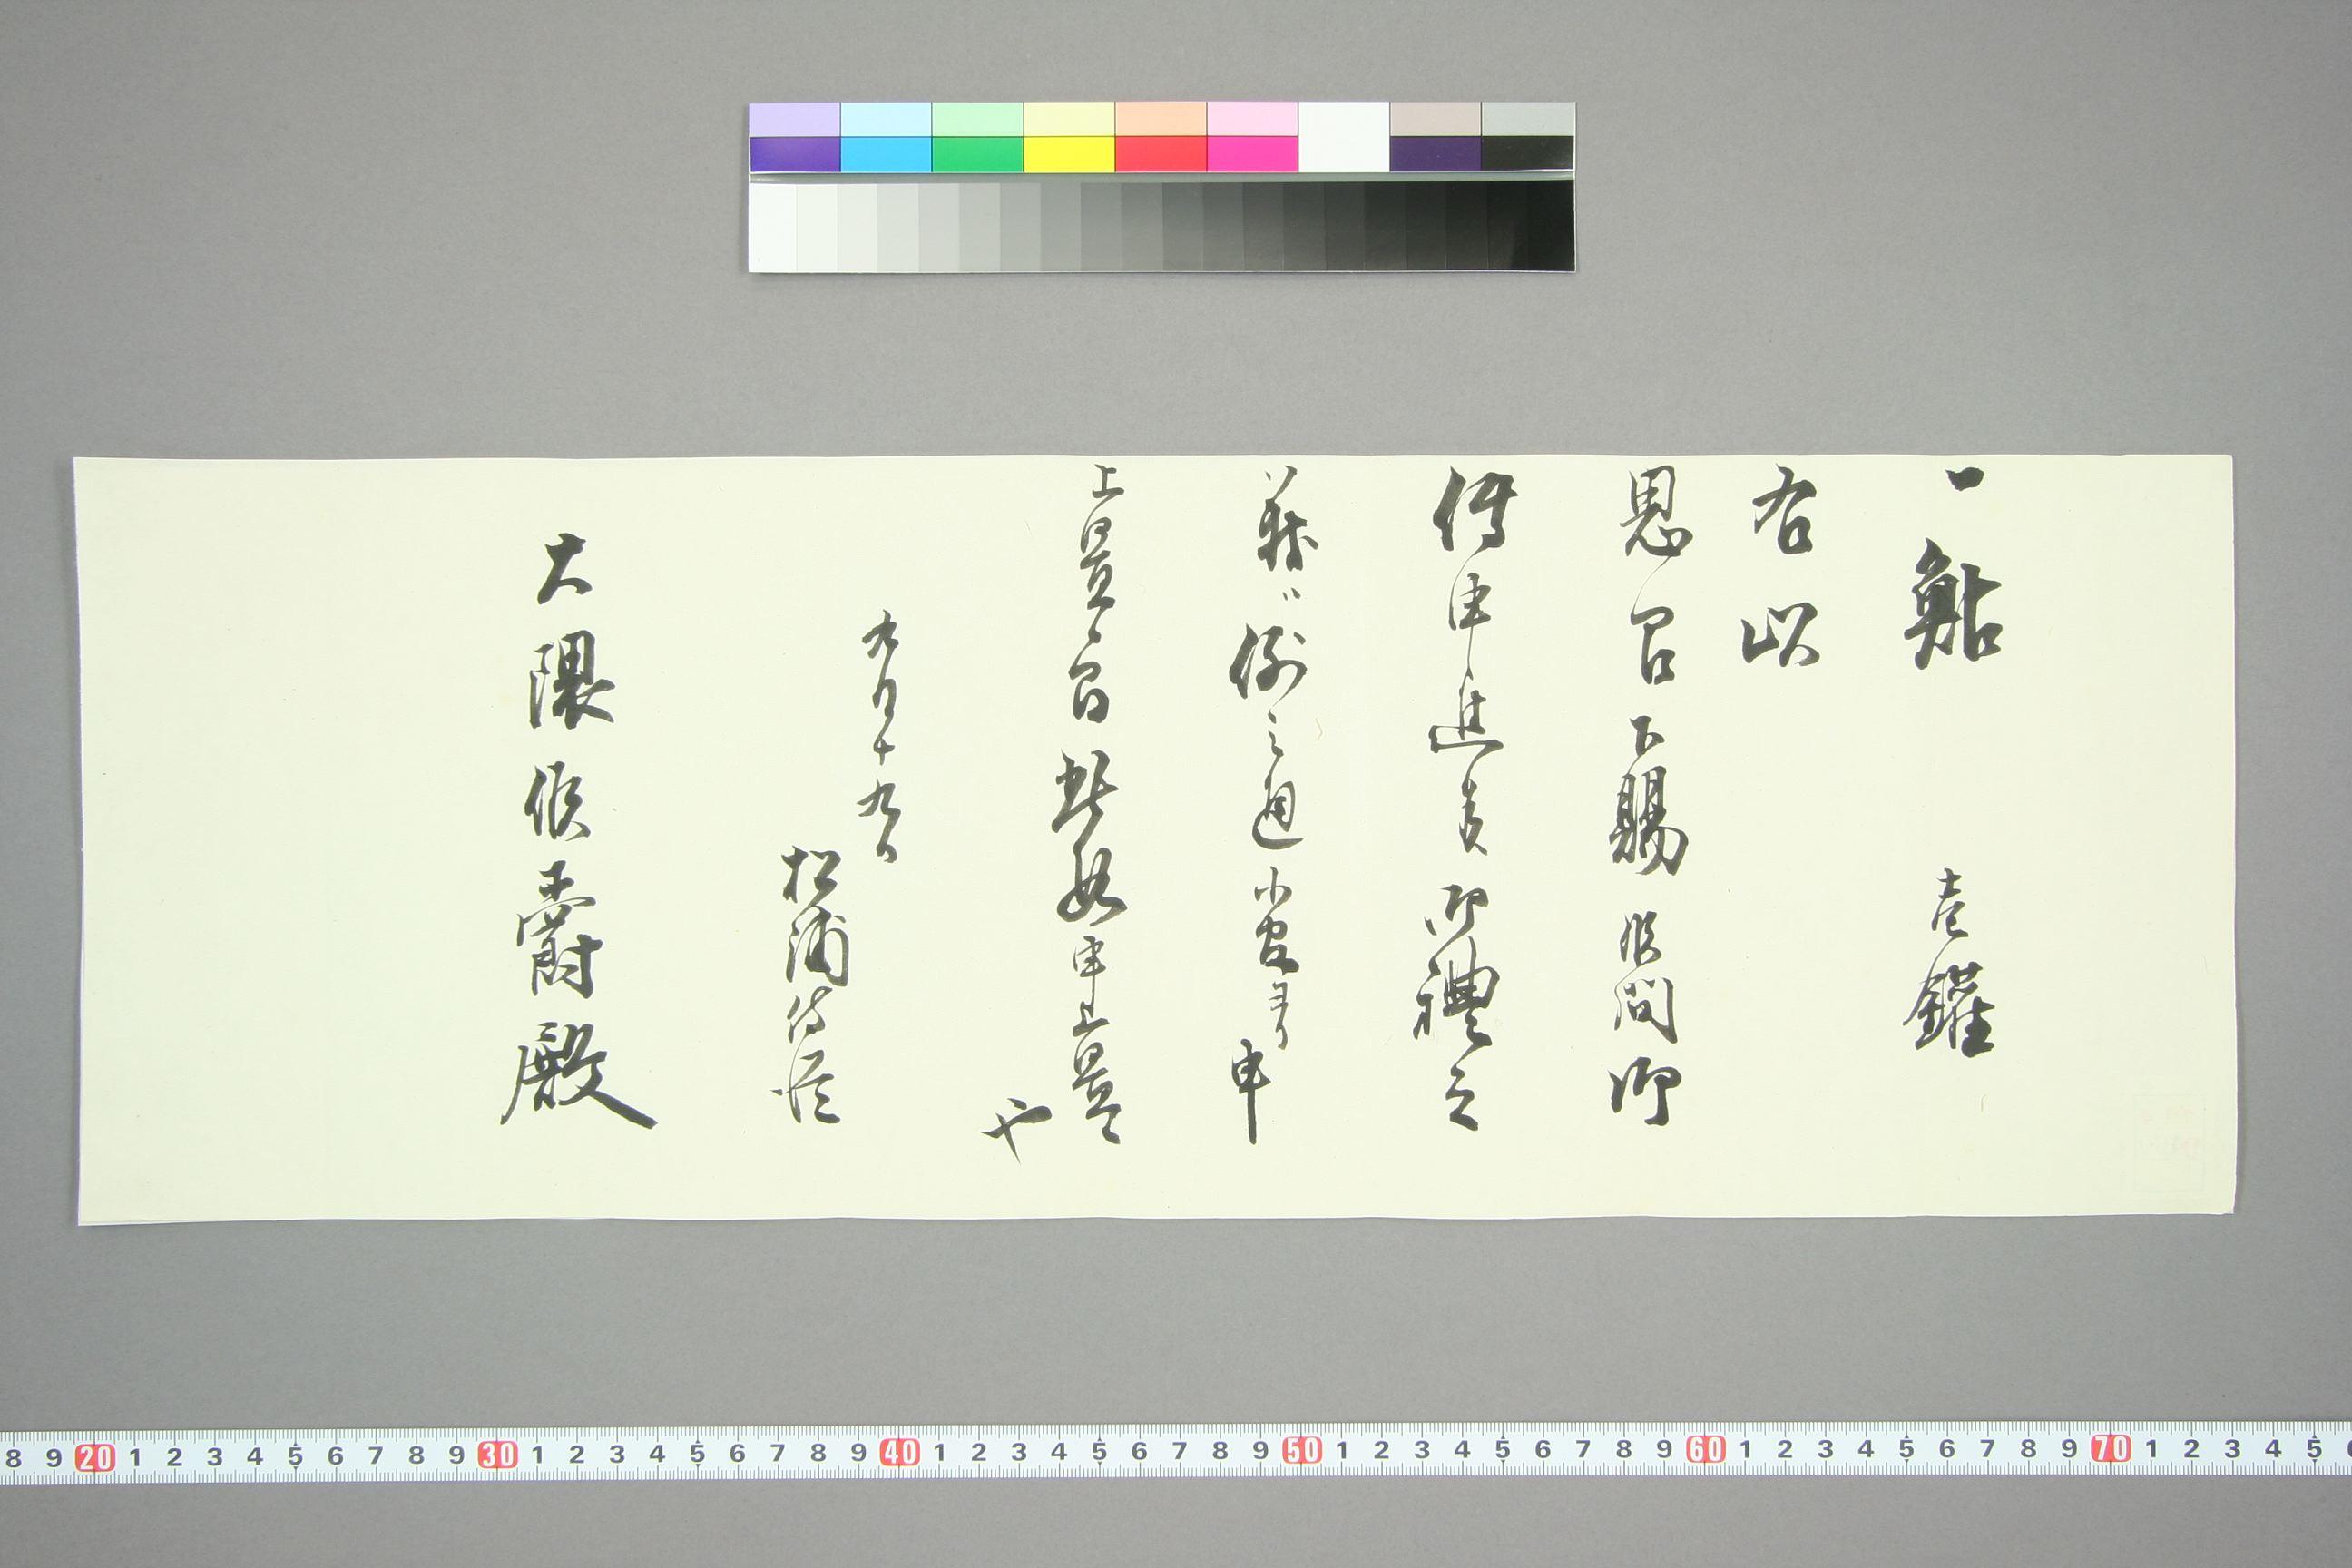 一 鮎 壱鑵
右以
思召下賜候間御
傳申進 御禮之
義ハ例之通小官ヨリ申
上置 此段申上置候
也
九月十九日
松浦侍従
大隈侯爵殿
8 9 20 1 2 3 4 5 6 7 8 9 30 1 2 3 4 5 6 7 8 9 40 1 2 3 4 5 6 7 8 9 50 1 2 3 4 5 6 7 8 9 60 1 2 3 4 5 6 7 8 9 70 1 2 3 4 5